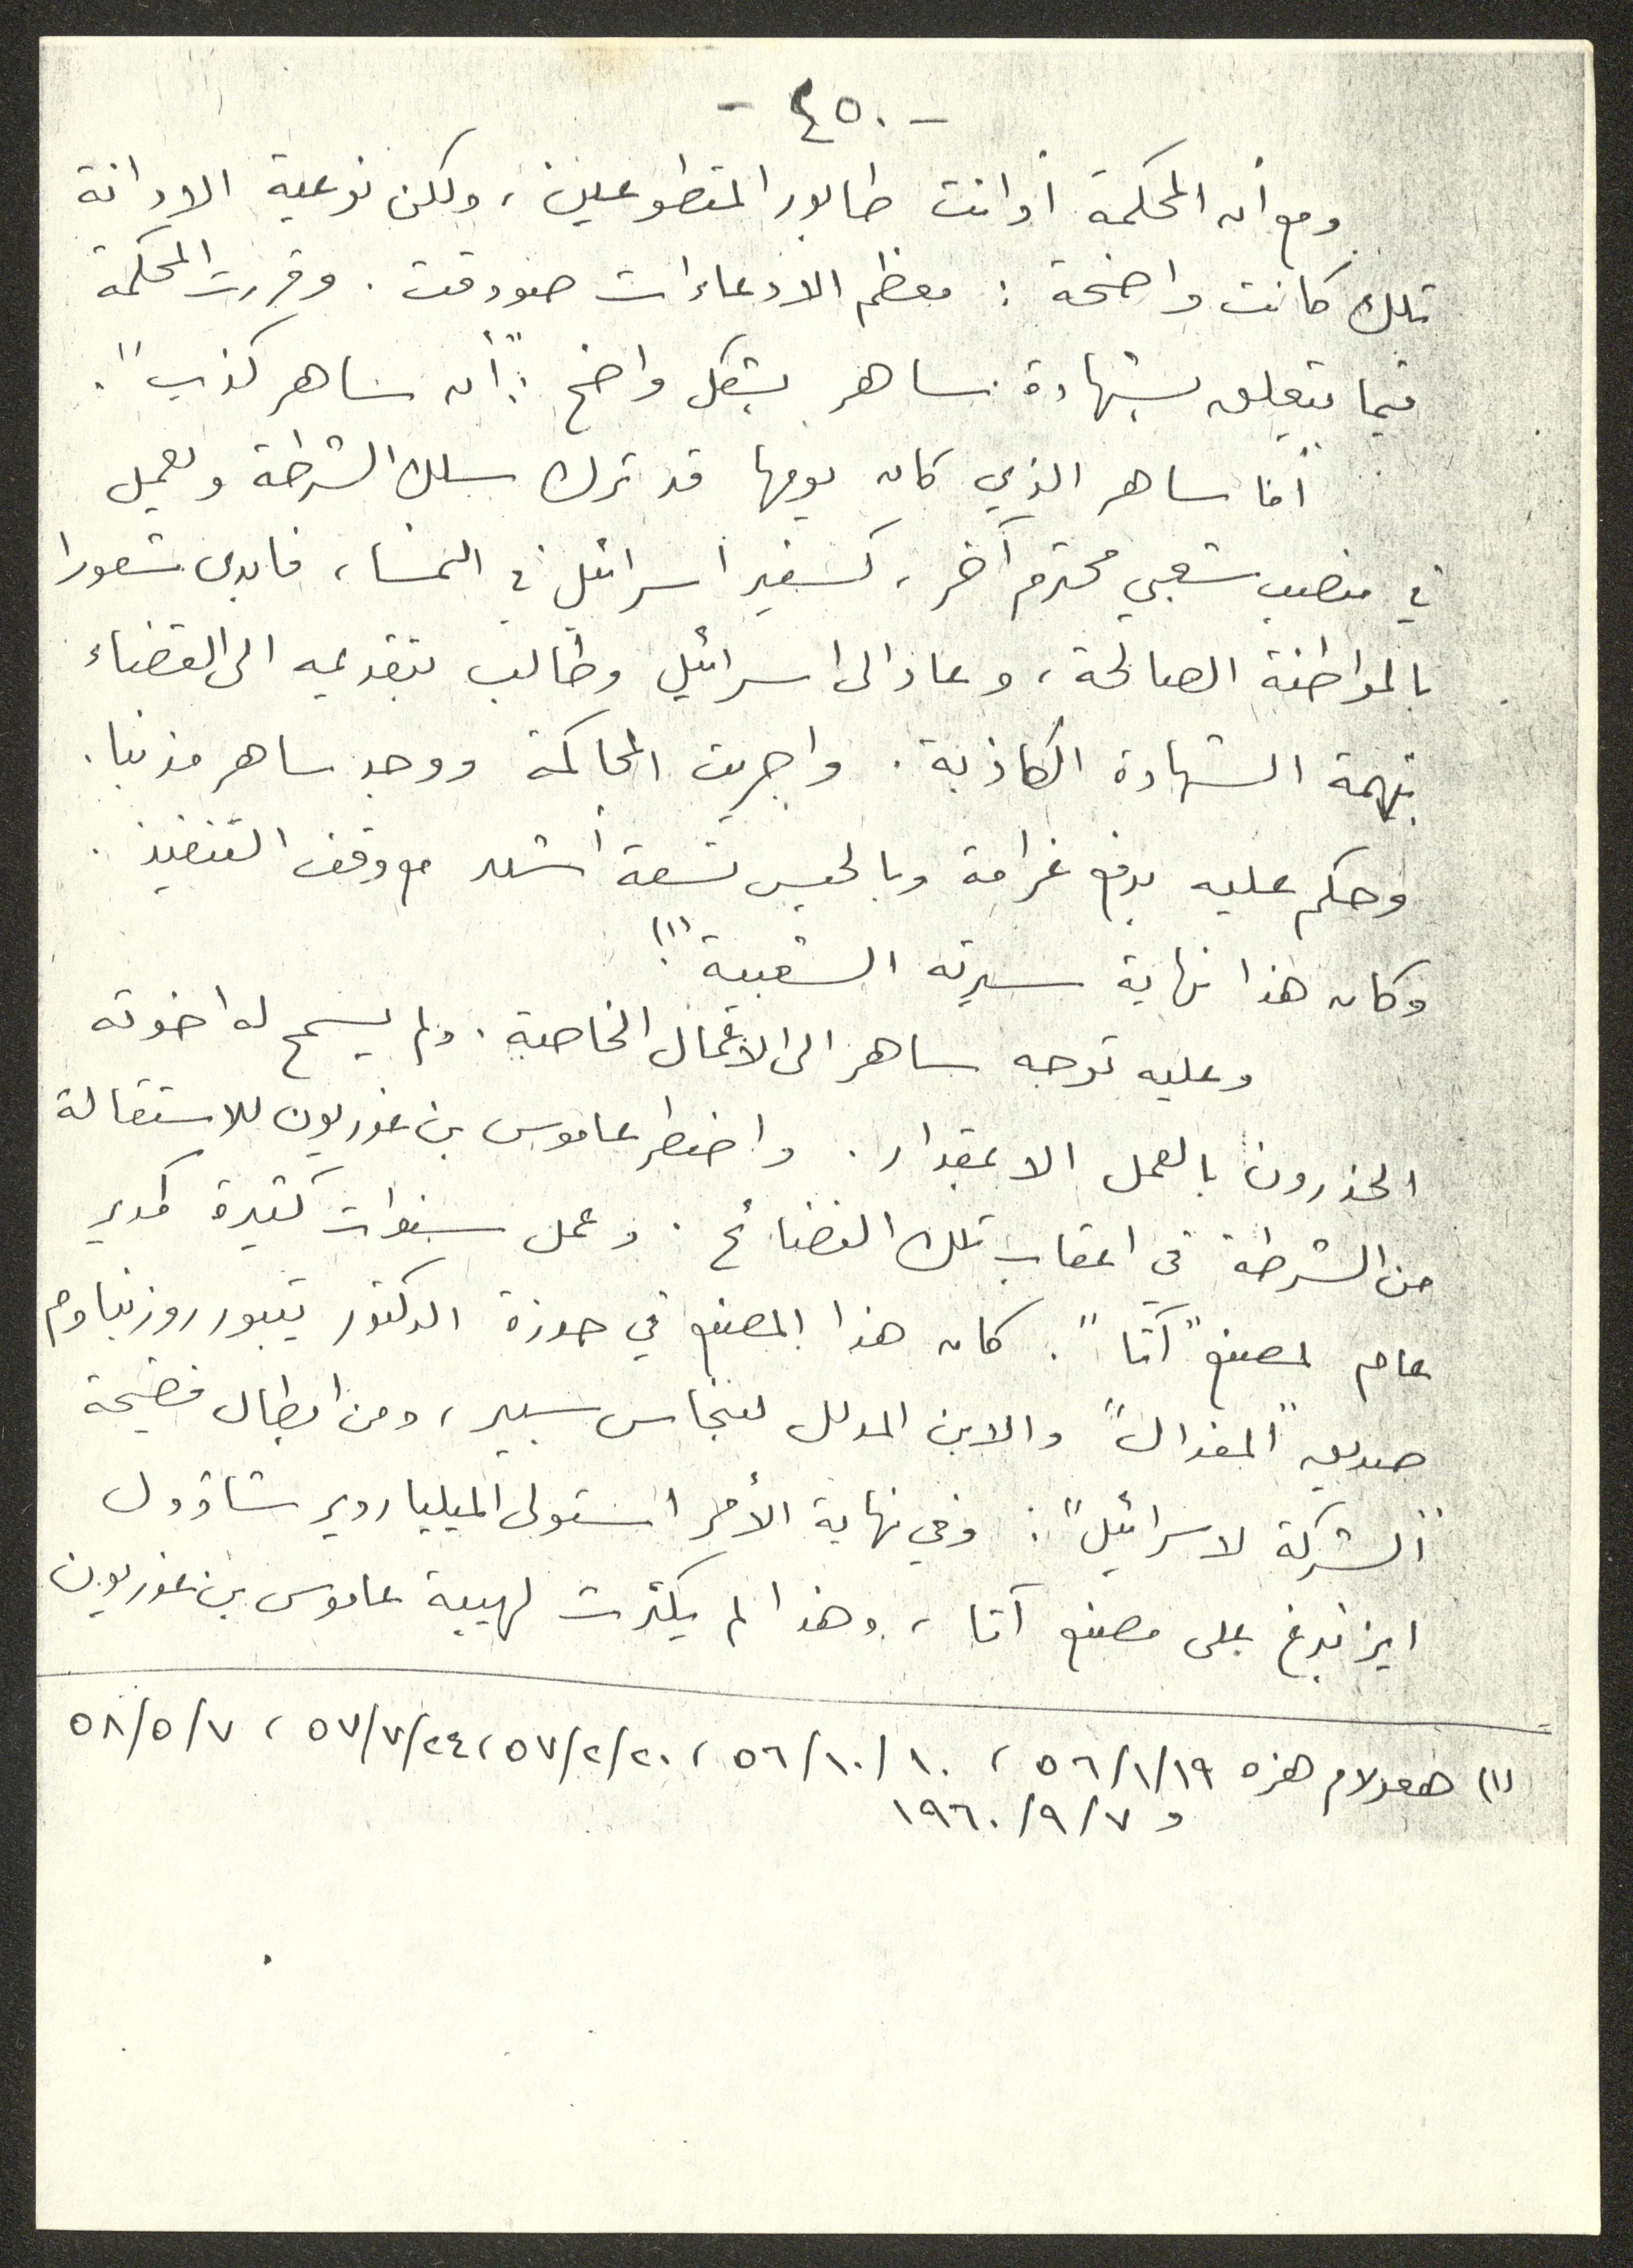 - ٤٥٠ -
ومع أن المحكمة أدانت طابور المتطوعين، ولكن نوعية الادانة
تلك كانت واضحة : معظم الادعاءات صودقت . وقررت المحكمة
فيما يتعلق بشهادة ساهر بشكل واضح : "أن ساهر كذب" .
أما ساهر الذي كان يومها قد ترك سلك الشرطة ويعمل
في منصب شعبي محترم آخر، كسفير اسرائيل في النمسا، فابدى شعورا
بالمواطنة الصالحة، وعاد الى اسرائيل وطالب بتقديمه الى القضاء
بتهمة الشهادة الكاذبة . واجريت المحاكمة ووجد ساهر مذنبا .
وحكم عليه بدفع غرامة وبالحبس تسعة أشهر مع وقف التنفيذ .
وكان هذا نهاية سيرته الشعبية" (١) .
وعليه توجه ساهر الى الاعمال الخاصة . ولم يسمح له اخوته
الحذرون بالعمل الا بمقدار . واضطر عاموس بن غوريون للاستقالة
من الشرطة في اعقاب تلك الفضائح . وعمل سنوات كثيرة كمدير
عام لمصنع "آتا" . كان هذا المصنع في حوزة الدكتور تيبور روزنباوم
صديق "المفدال" والابن المدلل لفنحاس سبير، ومن ابطال فضيحة
"الشركة لاسرائيل" : وفي نهاية الأمر استولى الميلياردير شاؤول
ايزنبرغ على مصنع آتا ، وهذا لم يكترث لهيبة عاموس بن غوريون
(١) هعولام هزه ٥٦/١/١٩ ، ٥٦/١٠/١٠ ، ٥٧/٢/٢٠ ، ٥٧/٧/٢٤ ، ٥٨/٥/٧
و ١٩٦٠/٩/٧